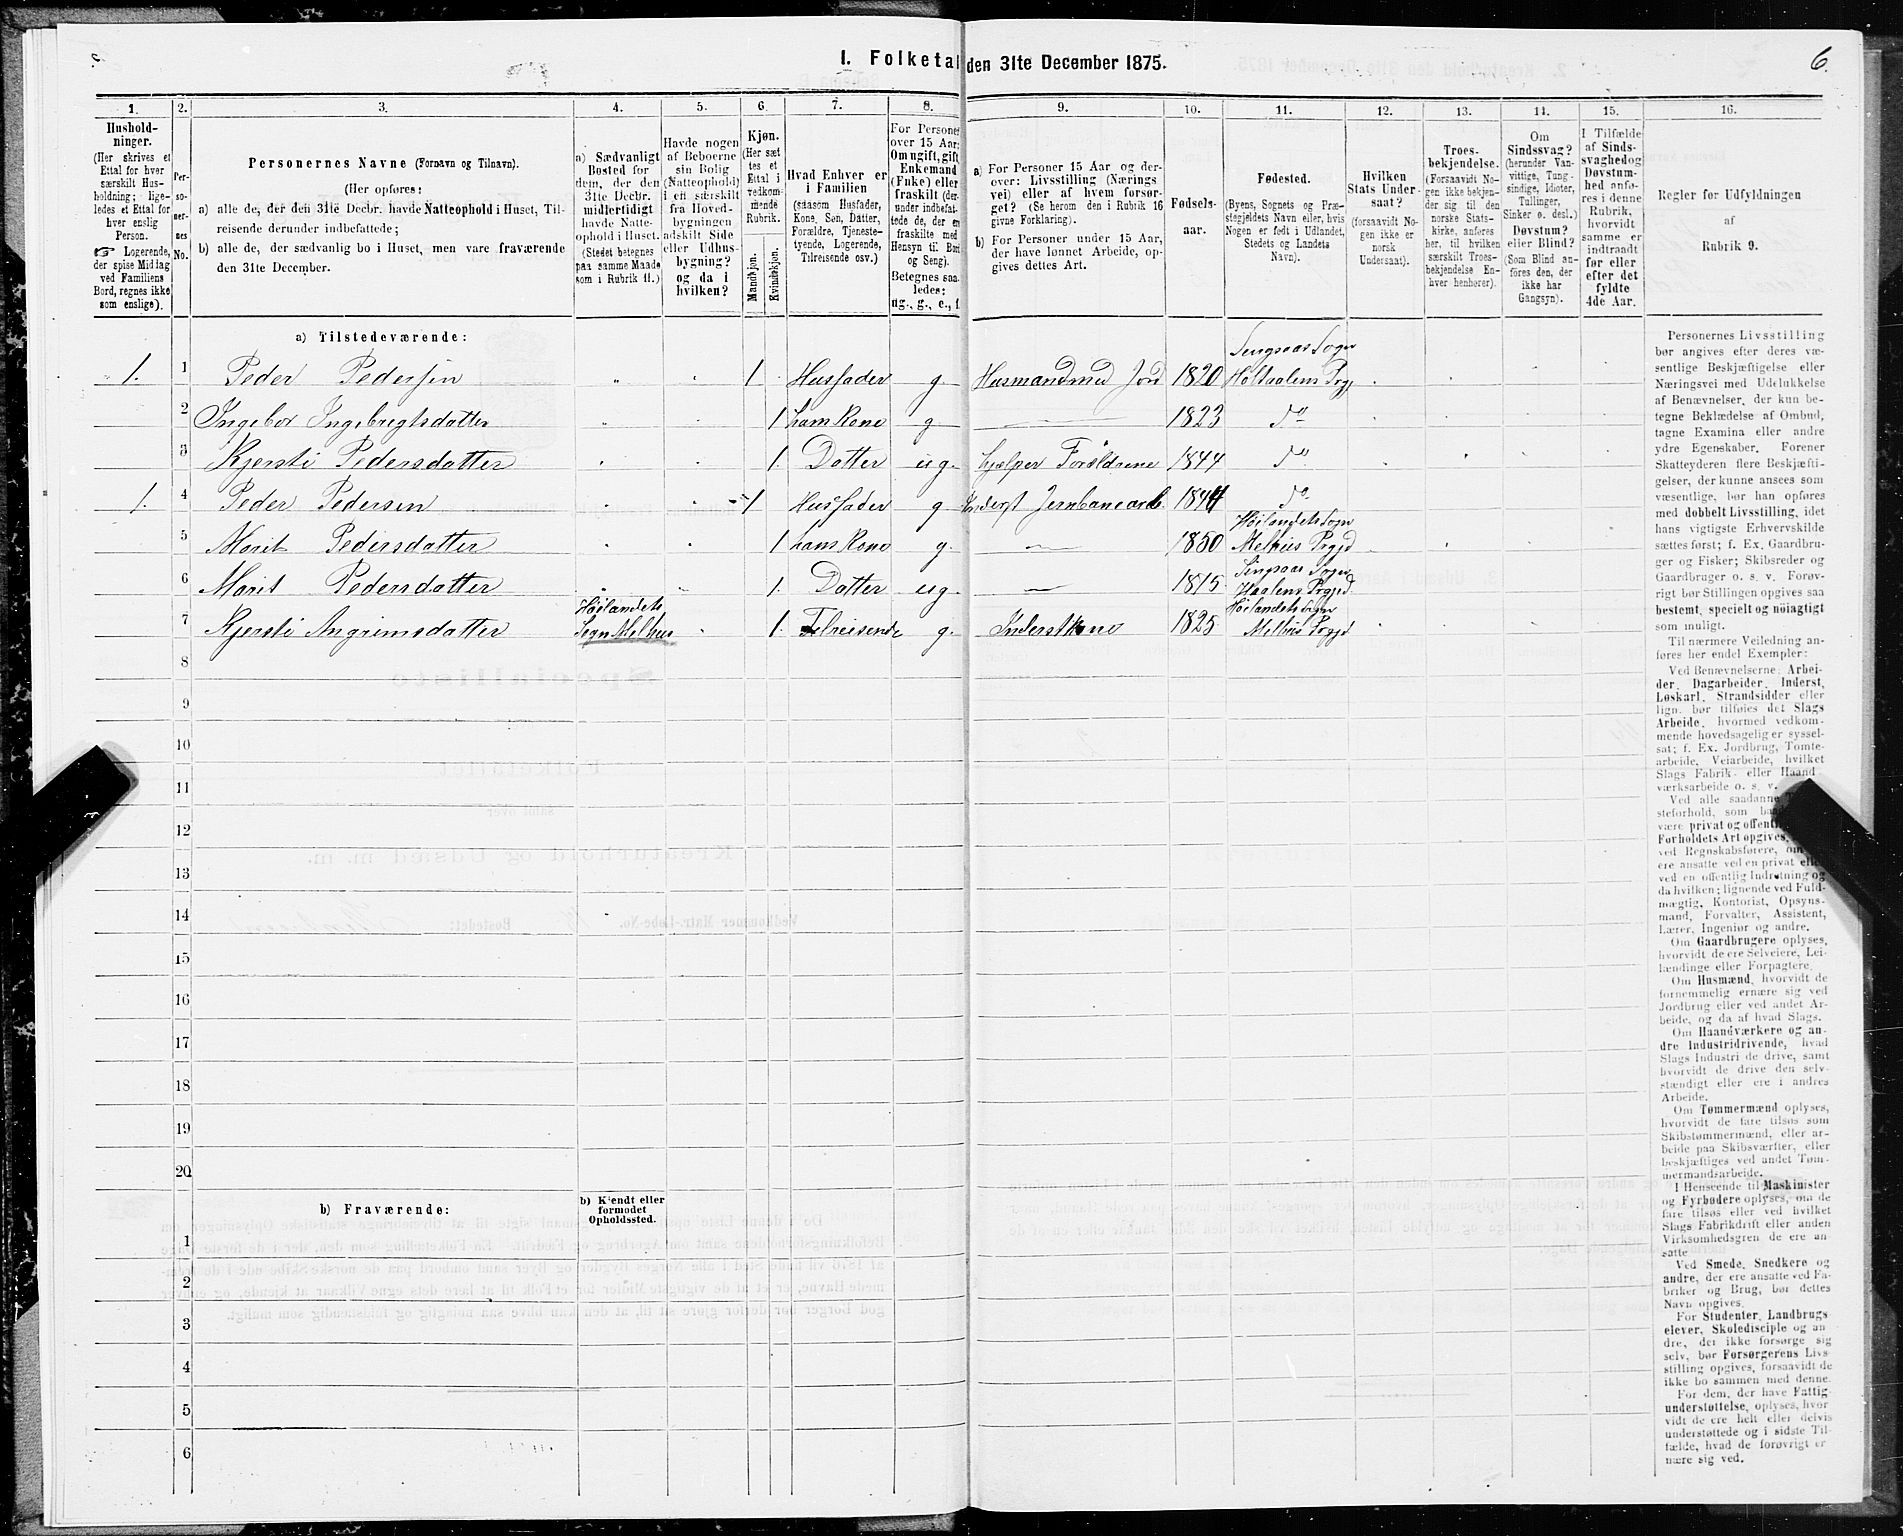 6.
I. Folketal den 31te December 1875.
1.
2.
3.
4.
5.
6.
7.
8.
9.
10.
11.
12.
13.
14.
15.
16.
Hushold-
ninger.
(Her skrives et
Ettal for hver
særskilt Hus-
holdning; lige-
ledes et Ettal for
hver enslig
Person.
☞ Logerende,
der spise Middag
ved Familiens
Bord, regnes ikke
som enslige).
Per-
so-
ner-
nes
No.
Personernes Navne (Fornavn og Tilnavn).
(Her opføres:
a) alle de, der den 31te Decbr. havde Natteophold i Huset, Til-
reisende derunder indbefattede;
b) alle de, der sædvanlig bo i Huset, men vare fraværende
den 31te December.
a) Sædvanligt
Bosted for
dem, der den
31te Decbr.
midlertidigt
havde Natte-
ophold i Huset.
(Stedet betegnes
paa samme Maade
som i Rubrik 11.)
Havde nogen
af Beboerne
sin Bolig
(Natteophold)
i en særskilt
fra Hoved-
bygningen
adskilt Side
eller Udhus-
bygning?
og da i
hvilken?
Kjøn.
(Her sæt
tes et
Ettal i
vedkom-
mende
Rubrik.
Mandkjøn.
Kvindekjøn.
Hvad Enhver er
i Familien
(saasom Husfader,
Kone, Søn, Datter,
Forældre, Tjeneste-
tyende, Logerende,
Tilreisende osv.)
For Personer
over 15 Aar:
Om ugift, gift,
Enkemand
(Enke) eller
fraskilt (der-
under indbefat-
tede de, der er
fraskilte med
Hensyn til Bord
og Seng).
Betegnes saa-
ledes:
ug., g., e., f.
a) For Personer 15 Aar og der-
over: Livsstilling (Nærings
vei) eller af hvem forsør-
get? (Se herom den i Rubrik 16
givne Forklaring).
b) For Personer under 15 Aar,
der have lønnet Arbeide, op-
gives dettes Art.
Fødsels-
aar.
Fødested.
(Byens, Sognets og Præ-
stegjeldets Navn eller, hvis
Nogen er født i Udlandet,
Stedets og Landets
Navn).
Hvilken
Stats Under-
saat?
(forsaavidt No-
gen ikke er
norsk
Undersaat).
Troes-
bekjendelse.
(Forsaavidt No-
gen ikke bekjen-
der sig til den
norske Stats-
kirke, anføres
her, til hvilken
særskilt Troes-
bekjendelse En-
hver henhører).
Om
Sindssvag?
(herunder Van-
vittige, Tung-
sindige, Idioter,
Sinker o. desl.)
Døvstum?
eller Blind?
(Som Blind an-
føres den, der
ikke har
Gangsyn).
I Tilfælde
af Sinds-
svaghed og
Døvstum-
hed anfø-
res i denne
Rubrik,
hvorvidt
samme er
indtraadt
før eller
efter det
fyldte
4de Aar.
Regler for Udfyldningen
af
Rubrik 9.
a) Tilstedeværende:
Singsaas Sogn
1. 1 Peder Pedersen 1 Husfader g. Husmand med Jord 1820 Holtaalens Prgj
2 Ingebor Ingebrigtsdatter 1 hans Kone g. 1823 do
3 Kjersti Pedersdatter 1. Datter ug. hjelper Forældrene 1844 do
1. 4 Peder Pedersen 1 Husfader g. Inderst Jernbanearb. 1844 do
Høilandets Sogn
5 Marit Pedersdatter 1 hans Kone g. 1850 Melhus Prgjd
Singsaas Sogn
6 Marit Pedersdatter 1. Datter ug. 1875 Haalens Prgjd
Høilandets Høilandets Sogn
7 Kjersti Angrimsdatter Sogn Melhus 1. Tilreisende g. Inderstkone 1825 Melhus Prgjd
8
9
10
11
12
13
14
15
16
17
18
19
20
b) Fraværende:
b) Kjendt eller
formodet
Opholdssted.
1
2
3
4
5
6
Personernes Livsstilling
bør angives efter deres væ-
sentlige Beskjæftigelse eller
Næringsvei med Udelukkelse
af Benævnelser, der kun be-
tegne Beklædelse af Ombud,
tagne Examina eller andre
ydre Egenskaber. Forener
Skatteyderen flere Beskjæfti-
gelser, der kunne ansees som
væsentlige, bør han opføres
med dobbelt Livsstilling, idet
hans vigtigste Erhvervskilde
sættes først; f. Ex. Gaardbru-
ger og Fisker; Skibsreder og
Gaardbruger o. s. v. Forøv-
rigt bør Stillingen opgives saa
bestemt, specielt og nøiagtigt
som muligt.
Til nærmere Veiledning an-
føres her endel Exempler:
Ved Benævnelserne: Arbei-
der, Dagarbeider, Inderst,
Løskarl, Strandsidder eller
lign. bør tilføies det Slags
Arbeide, hvormed vedkom-
mende hovedsagelig er syssel-
sat; f. Ex. Jordbrug, Tomte-
arbeide, Veiarbeide, hvilket
Slags Fabrik- eller Haand-
værksarbeide o. s. v.
Ved alle saadanne
steforhold, som
være privat og offent
Forholdets Art opgives,
ved Regnskabsførere, om
ere ansatte ved en privat eller
ved en offentlig Indretning og
da hvilken; lignende ved Fuld-
mægtig, Kontorist, Opsyns-
mand, Forvalter, Assistent,
Lærer, Ingeniør og andre.
Om Gaardbrugere oplyses,
hvorvidt de ere Selveiere, Lei-
lændinge eller Forpagtere.
Om Husmænd, hvorvidt de
fornemmelig ernære sig ved
Jordbrug eller ved andet Ar-
beide, og da af hvad Slags.
Om Haandværkere og an-
dre Industridrivende, hvad
Slags Industri de drive, samt
hvorvidt de drive den selv-
stændigt eller ere i andres
Arbeide.
Om Tømmermænd oplyses,
hvorvidt de fare tilsøs som
Skibstømmermænd, eller ar-
beide paa Skibsværfter, eller
beskjæftiges ved andet Tøm-
mermandsarbeide.
I Henseende til Maskinister
og Fyrbødere oplyses, om de
fare tilsøs eller ved hvilket
Slags Fabrikdrift eller anden
Virksomhedsgren de ere an-
satte
Ved Smede, Snedkere og
andre, der ere ansatte ved Fa-
briker og Brug, bør dettes
Navn opgives.
For Studenter, Landbrugs-
elever, Skoledisciple og an
dre, der ikke forsørge sig
selv, bør Forsørgerens Livs-
stilling opgives, forsaavidt de
ikke bo sammen med denne.
For dem, der have Fattig-
understøttelse, oplyses, hvor
vidt de ere helt eller delvis
understøttede og i sidste Til-
fælde, hvad de forøvrigt er
nære sig ved.